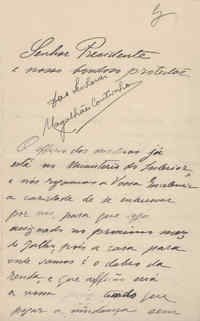 Senhor Presidente
e nosso bondoso protector
Magalhães Coutinho
O officio das medicas já
está no Ministerio do Interior
e nós rogamos a Vossa Excelencia
a caridade de se interessar
por nós, para que seja
assignado no proximo mez
de Julho, pois a casa para
onde vamos é o dobro da
renda, e que afflição será
a nossa
pagar a mudança sem